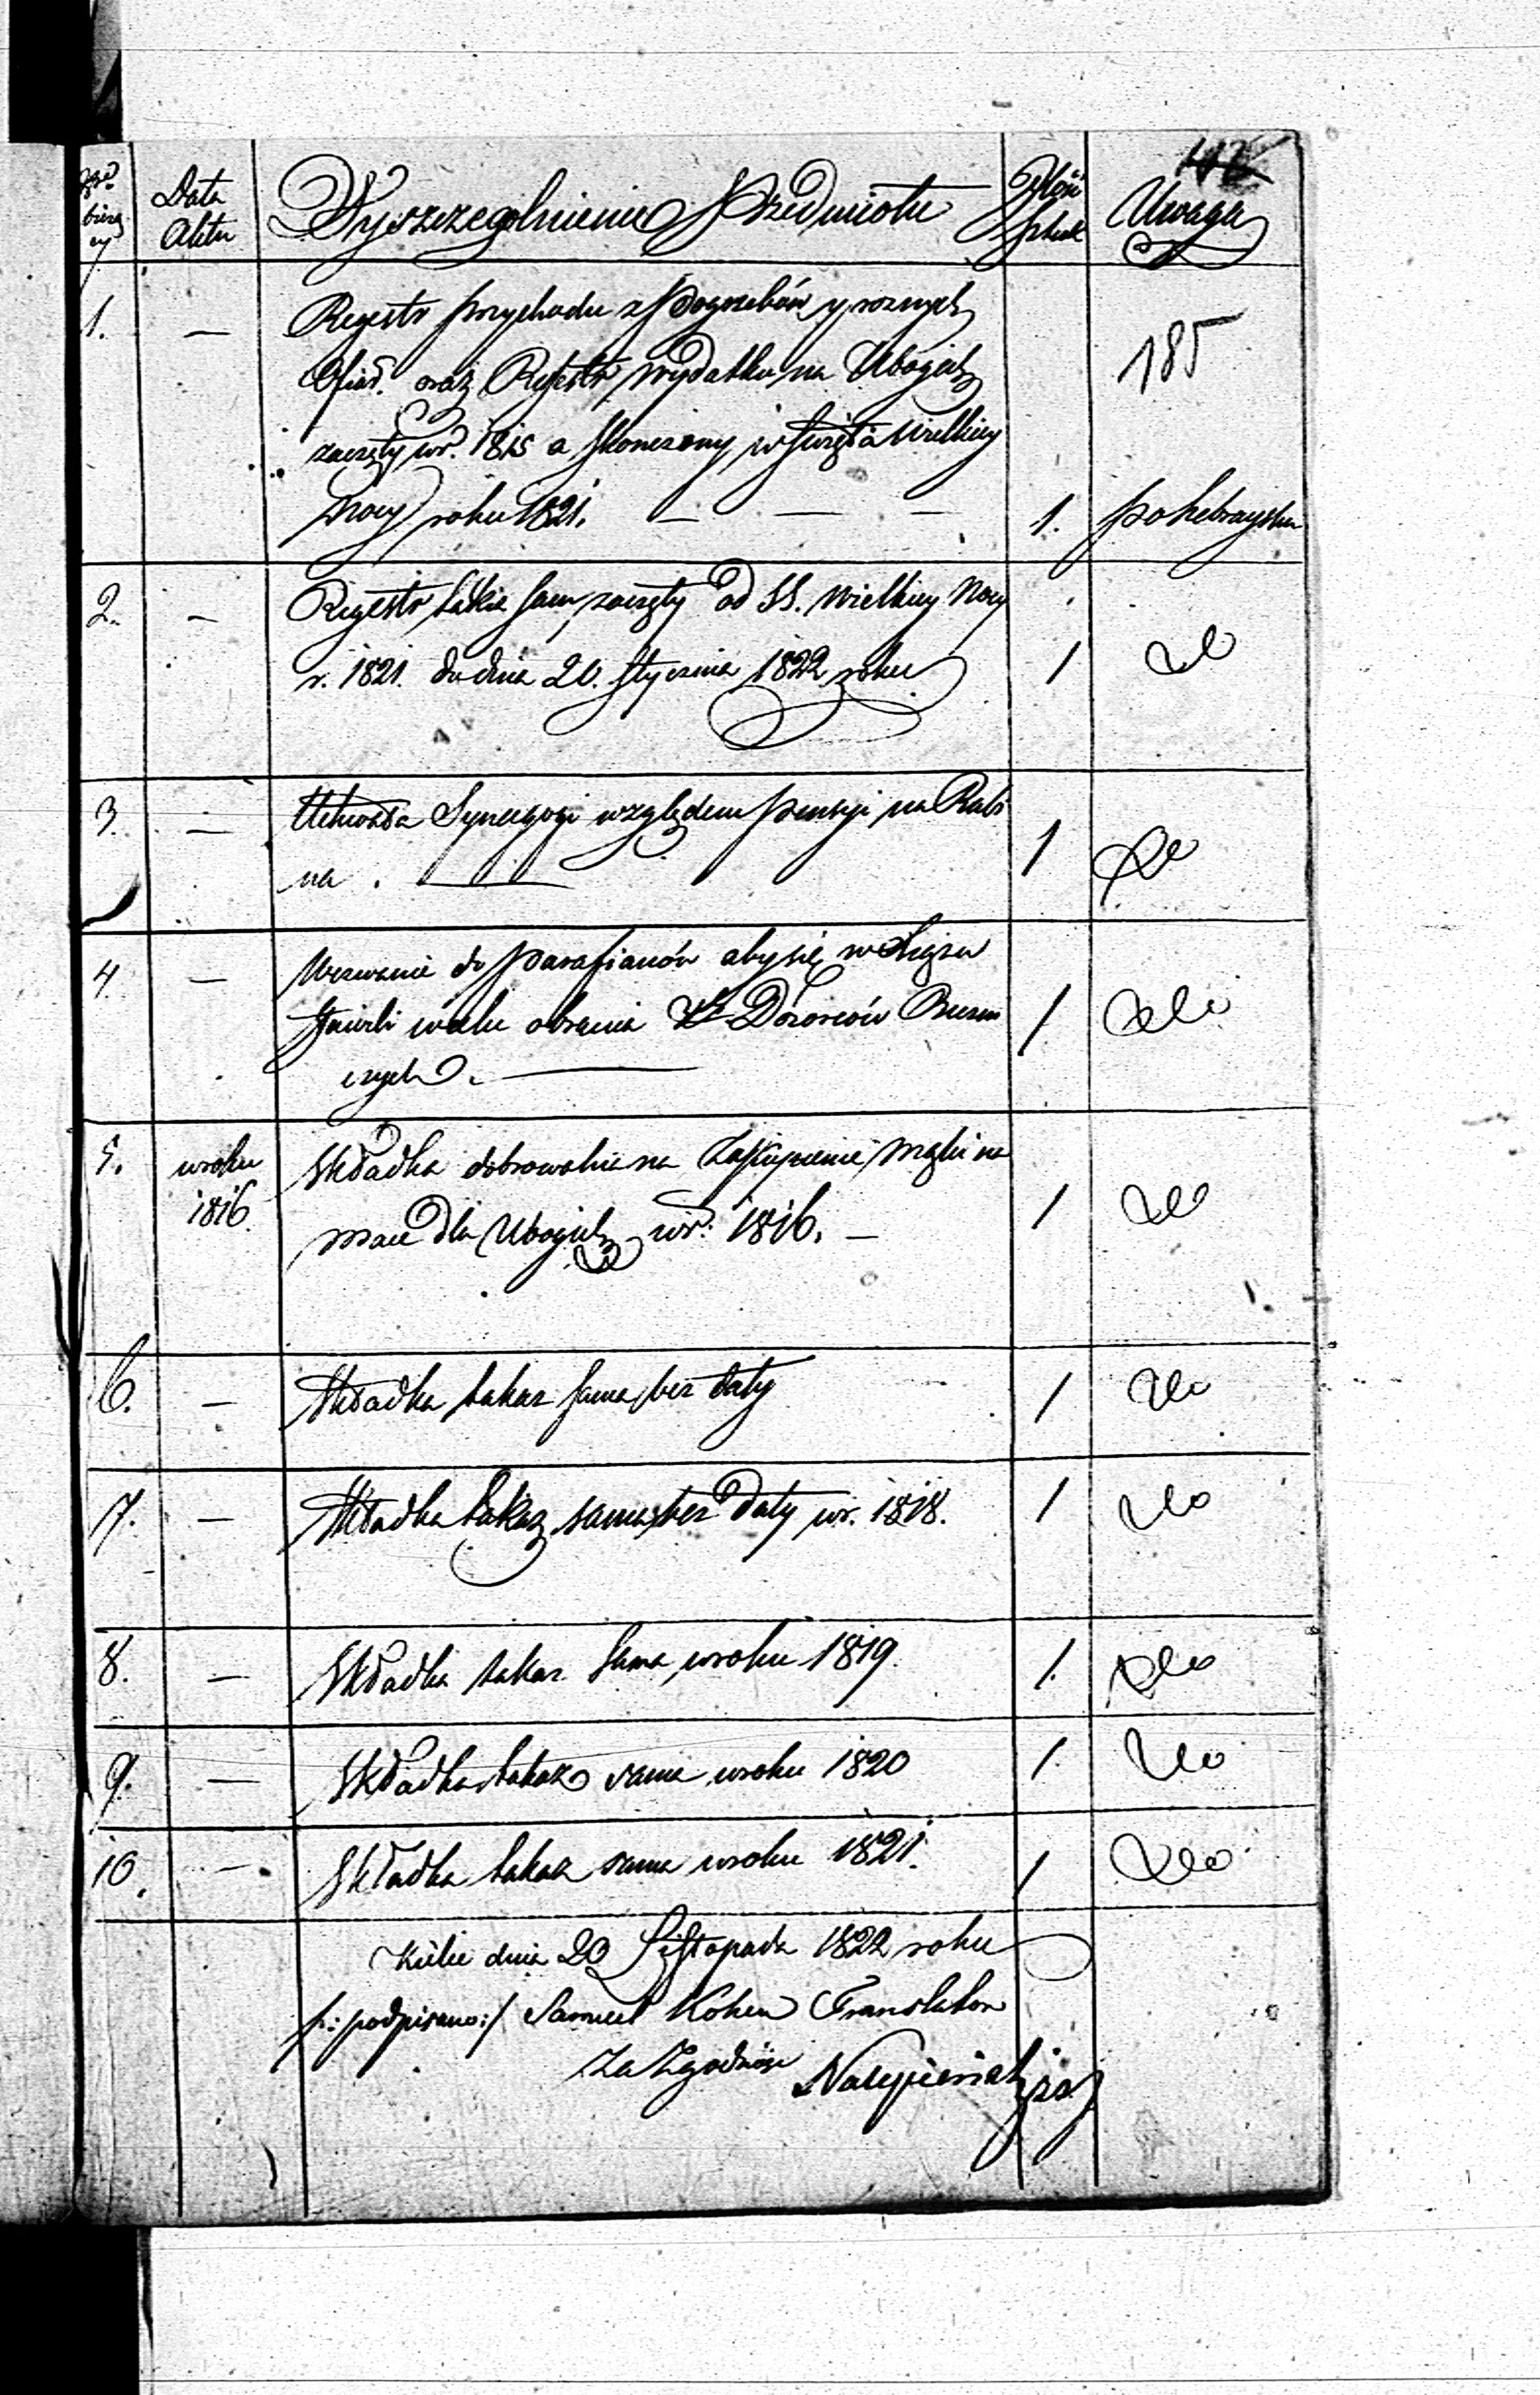 Nro bieżący Data Aktu Wyszczegolnienie Przedmiotu Ilość sztuk Uwaga
1. — Regestr przychodu z Pogrzebów y roznych
Ofiar. oraz Rejestr wydatku na Ubogich 185
zaczęty w r. 1815 a skonczony w Swięta Wielkiey
Nocy roku 1821. — — — 1. po hebraysku
2. — Regestr takie sam zaczęty od SS. Wielkiey Nocy
r. 1821. do dnia 20. Stycznia 1822 roku 1
3. — Uchwała Synagogi względem pensyi na Rabi
na. — 1
4. — Wezwanie do Parafianów aby się w Xięzu
stawili w celu obrania Dozorców Buzni
czych. — 1
5. w roku Składka dobrowolna na Zakupienie mąki na
1816. mace dla Ubogich w r. 1816. — 1
6. — Składka takaz sama bez daty 1
7. — Składka takaz sama bez daty w r. 1818. 1
8. — Składka takaz sama w roku 1819. 1.
9. — Składka takaz sama w roku 1820 1.
10. — Składka takaz sama w roku 1821. 1
Kielce dnia 20 Listopada 1822 roku
/:podpisano:/ Samuel Kohen Translator
Za Zgodność